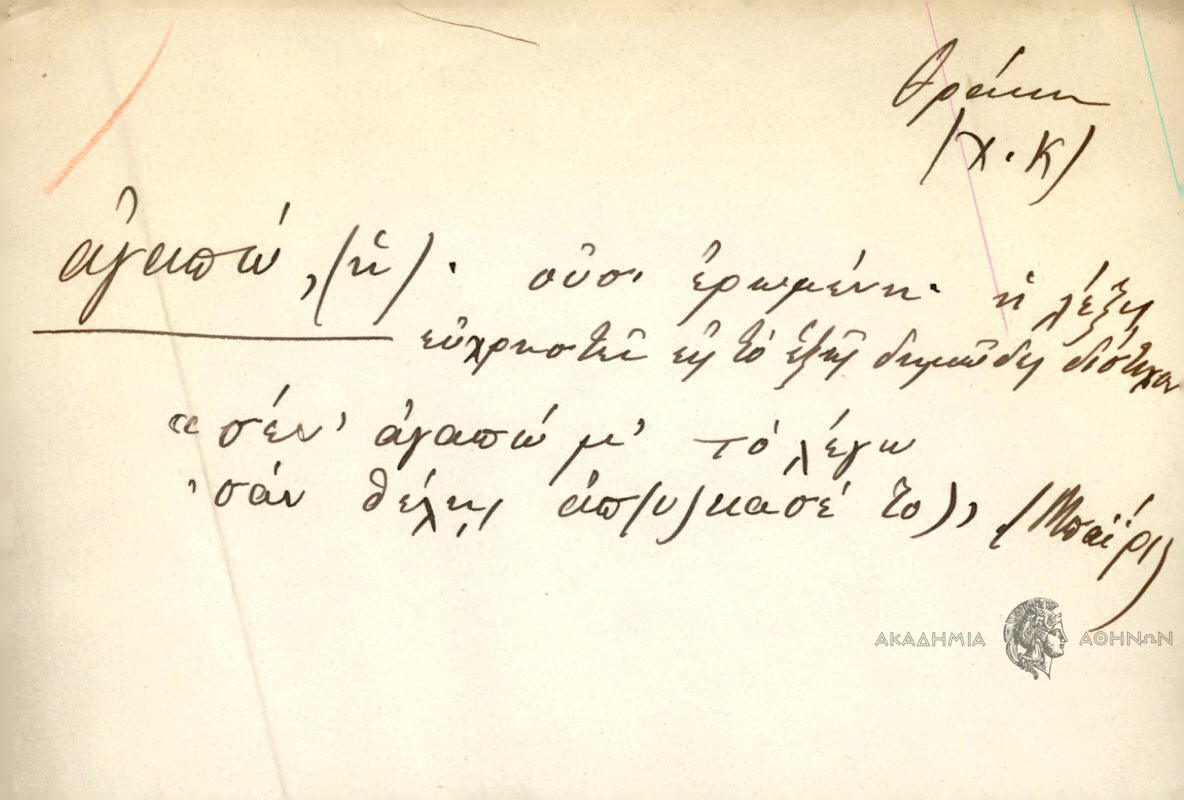 Θράκη
(Χ. Κ)
ἀγαπώ, (ἡ). οὐσ. ἐρωμένη. ἡ λέξις
εὐχρηστεῖ εἰς τὸ ἑξῆς δημῶδες δίστιχον
«σέν' ἀγαπώ μ' τὸ λέγω
'σὰν θέλῃς ἀπ(υ)κασέ το» (Μπαΐρι)
ΑΚΑΔΗΜΙΑ ΑΘΗΝΩΝ